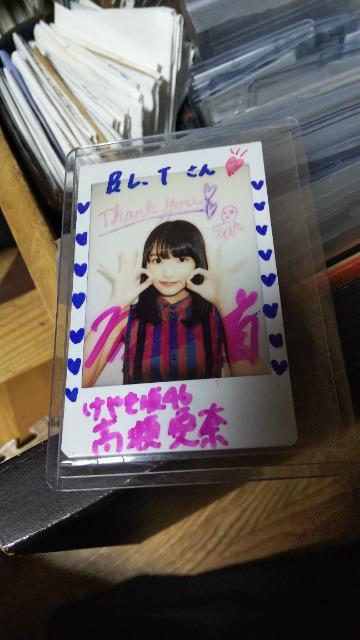 B.L.Tさん
Thank You
けやき坂46
高瀬愛奈